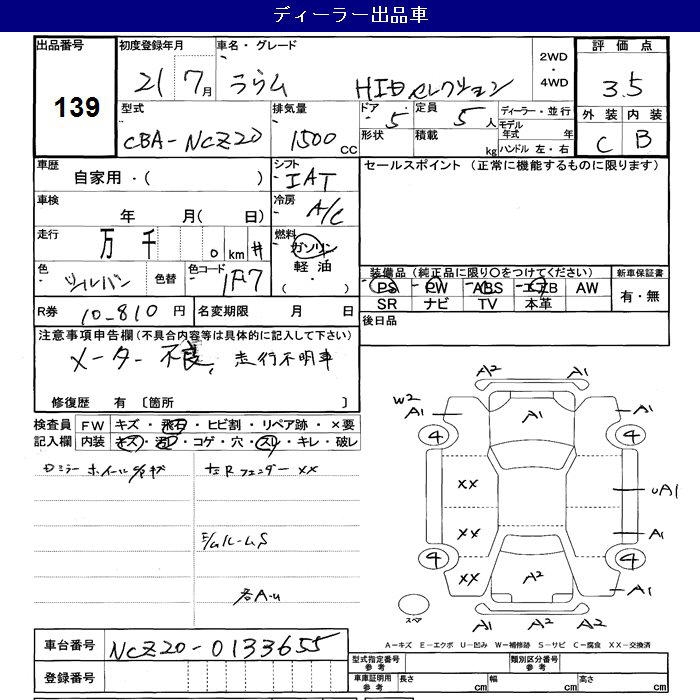 ディーラー出品車
出品番号 初度登録年月 車名・グレード 2WD・4WD 評価点
139 21 7月 ラウム HIDセレクション 3.5
型式 排気量 ドア・形状 定員 ディーラー・並行 外装 内装
CBA-NCZ20 1500 CC 5 5人 モデル年式 年 C B
積載 kg ハンドル 左・右
車歴 シフト セールスポイント (正常に機能するものに限ります)
自家用・( ) IAT
車検 年 月( 日) 冷房 A/C
走行 万 千 0 km # 燃料 ガソリン
軽油・( )
色 シルバー 色替 色コード 1F7
装備品 (純正品に限り○をつけてください) 新車保証書
PS PW ABS エアB AW 有・無
SR ナビ TV 本革
R券 10-810 円 名変期限 月 日 後日品
注意事項申告欄 (不具合内容等は具体的に記入して下さい)
メーター不良、走行不明車
修復歴 有 〔箇所 〕
検査員 FW キズ・飛石・ヒビ割・リペア跡・×要
記入欄 内装 キズ・汚レ・コゲ・穴・スレ・キレ・破レ
XX
S
各A-U
A2 A1
W2 A1 A1 A1
4 4
XX UA1
XX A1
4 4
XX A2 A1
スペア A1 A2 A2
A-キズ E-エクボ U-凹み W-補修跡 S-サビ C-腐食 XX-交換済
車台番号 NCZ20-0133655
型式指定番号 参考 類別区分番号 参考
登録番号 車庫証明用 参考 長さ cm 幅 cm 高さ cm